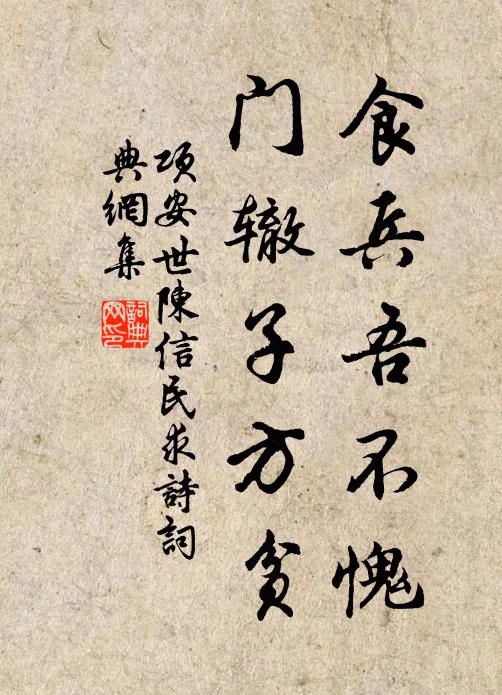 食兵吾不愧
门辙子方贫
项安世陳信民求詩詞
典網集
詞典
网印